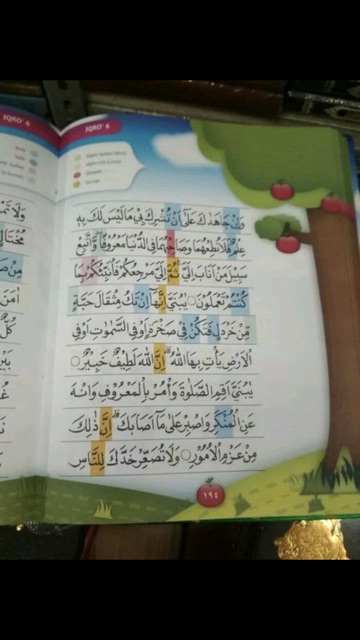 IQRO' 6
IQRO' 6
وَاِنْ جَاهَدٰكَ عَلٰٓى اَنْ تُشْرِكَ بِيْ مَا لَيْسَ لَكَ بِهٖ
عِلْمٌ فَلَا تُطِعْهُمَا وَصَاحِبْهُمَا فِى الدُّنْيَا مَعْرُوْفًا وَّاتَّبِعْ
سَبِيْلَ مَنْ اَنَابَ اِلَيَّ ثُمَّ اِلَيَّ مَرْجِعُكُمْ فَاُنَبِّئُكُمْ بِمَا
كُنْتُمْ تَعْمَلُوْنَ ۝ يٰبُنَيَّ اِنَّهَآ اِنْ تَكُ مِثْقَالَ حَبَّةٍ
مِّنْ خَرْدَلٍ فَتَكُنْ فِيْ صَخْرَةٍ اَوْ فِى السَّمٰوٰتِ اَوْ فِى
الْاَرْضِ يَأْتِ بِهَا اللّٰهُ ۗ اِنَّ اللّٰهَ لَطِيْفٌ خَبِيْرٌ ۝
يٰبُنَيَّ اَقِمِ الصَّلٰوةَ وَأْمُرْ بِالْمَعْرُوْفِ وَانْهَ
عَنِ الْمُنْكَرِ وَاصْبِرْ عَلٰى مَآ اَصَابَكَ ۗ اِنَّ ذٰلِكَ
مِنْ عَزْمِ الْاُمُوْرِ ۝ وَلَا تُصَعِّرْ خَدَّكَ لِلنَّاسِ
١٩٤